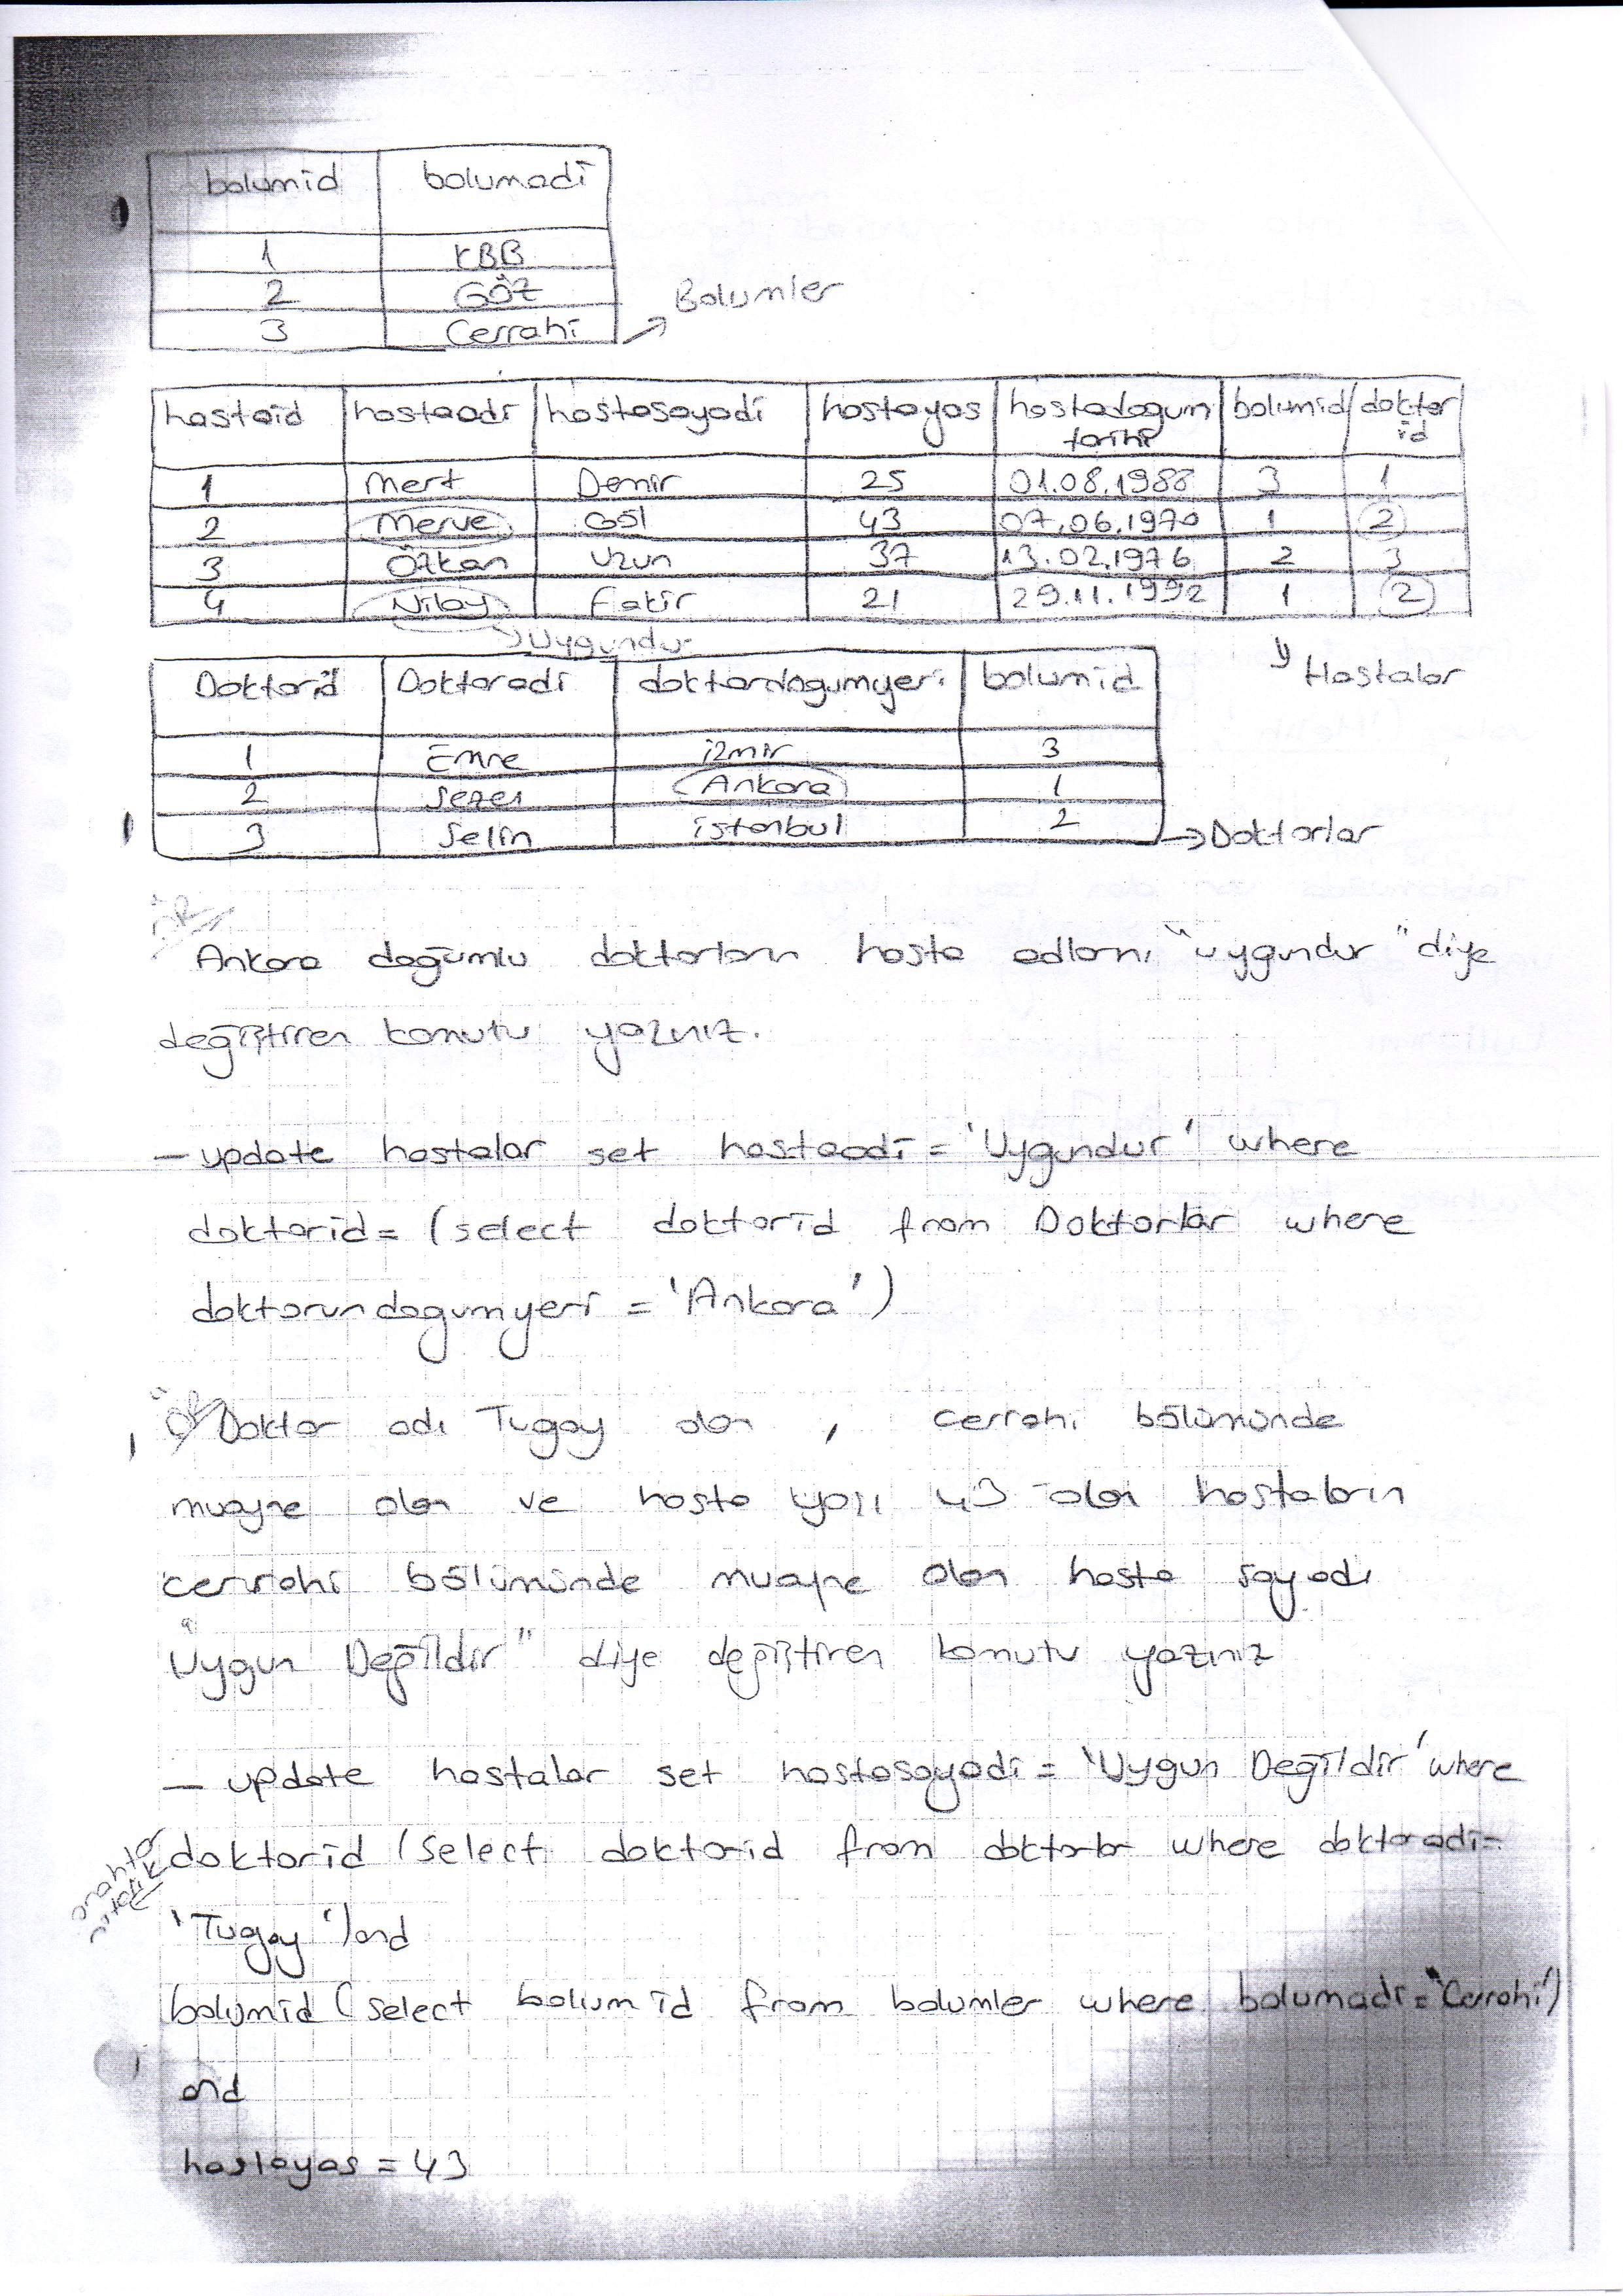 bolumid bolumadi
1 KBB
2 GÖZ
3 Cerrahi
→ Bolumler
hastaid hastaadi hastasoyadi hastayas hastadogum tarihi bolumid doktor id
1 Mert Demir 25 01.08.1988 3 1
2 Merve Göl 43 07.06.1970 1 2
3 Özkan Uzun 37 13.02.1976 2 3
4 Nilay Fakir 21 29.11.1992 1 2
→ Uygundur
Hastalar
Doktorid Doktoradi doktordogumyeri bolumid
1 Emre izmir 3
2 Sezer Ankara 1
3 Selin istanbul 2
→ Doktorlar
ÖR
Ankara doğumlu doktorların hasta adlarnı "uygundur" diye
değiştiren komutu yazınız.
– update hastalar set hastaadi = 'Uygundur' where
doktorid = (select doktorid from Doktorlar where
doktorundogumyeri = 'Ankara')
ÖR Doktor adı Tugay olan , cerrahi bölümünde
muayne olan ve hasta yaşı 43 olan hastaların
cerrahi bölümünde muayne olan hasta soyadı
"Uygun Değildir" diye değiştiren komutu yazınız
– update hastalar set hastasoyadi = 'Uygun Değildir' where
doktorid (select doktorid from doktorlar where doktoradi=
'Tugay') and
bolumid (select bolumid from bolumler where bolumadi = 'Cerrahi')
and
hastayas = 43